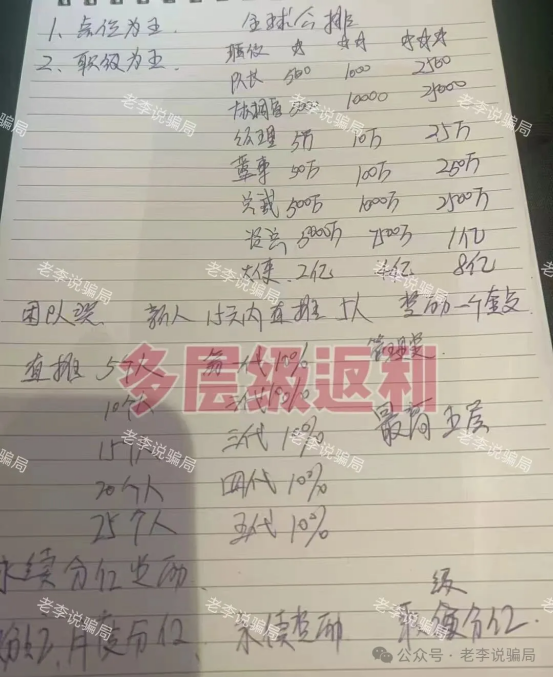 1、点位为王. 全球公排
2、职级为王. 职位 ☆ ☆☆ ☆☆☆
队长 500 1000 2500
协调官 10000 25000
经理 5万 10万 25万
董事 50万 100万 250万
500万 1000万 2500万
5000万 7500万 1亿
大使 2亿 8亿
团队奖 新人 15天内直推5人 奖励一个
直推 5个人 一代10% 管理奖
多层级返利
10个人 二代10%
15个人 三代10% 最高五层
20个人 四代10%
25个人 五代10%
永续分红奖励.
级
分红、月度分红、永续奖励 分红.
公众号·老李说骗局
老李说骗局